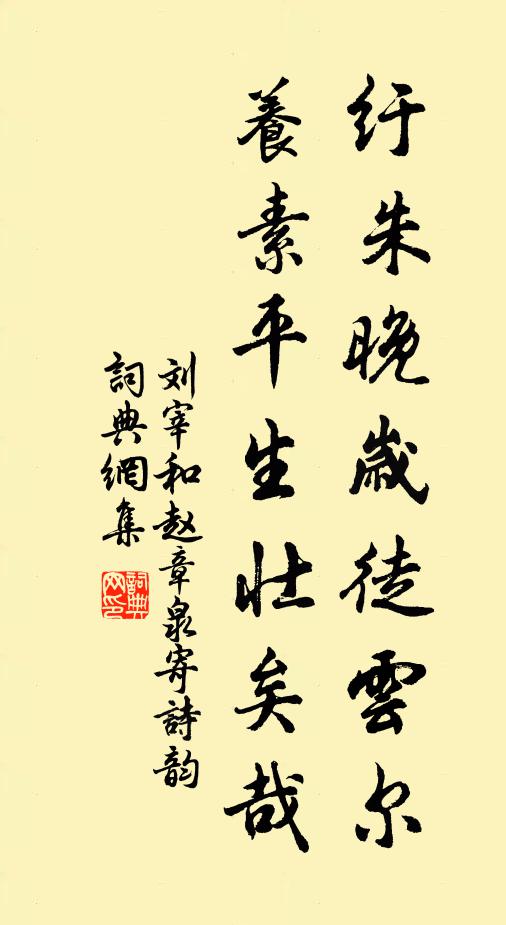 纡朱晚歲徒雲尔
養素平生壯矣哉
刘宰和赵章泉寄詩韵
詞典網集
詞典網印